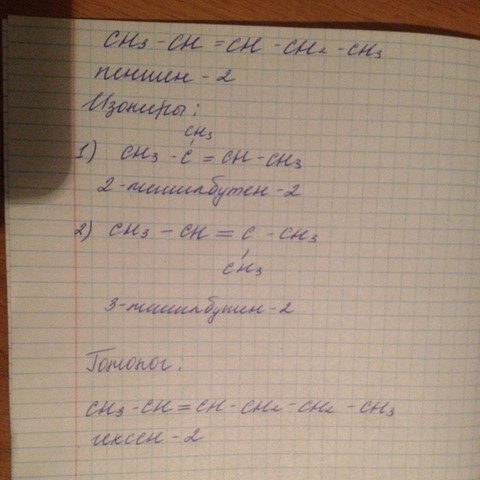 CH3 - CH = CH - CH2 - CH3
пентен - 2
Изомеры:
CH3
1) CH3 - C = CH - CH3
2 - метилбутен - 2
2) CH3 - CH = C - CH3
CH3
3 - метилбутен - 2
Гомолог:
CH3 - CH = CH - CH2 - CH2 - CH3
гексен - 2